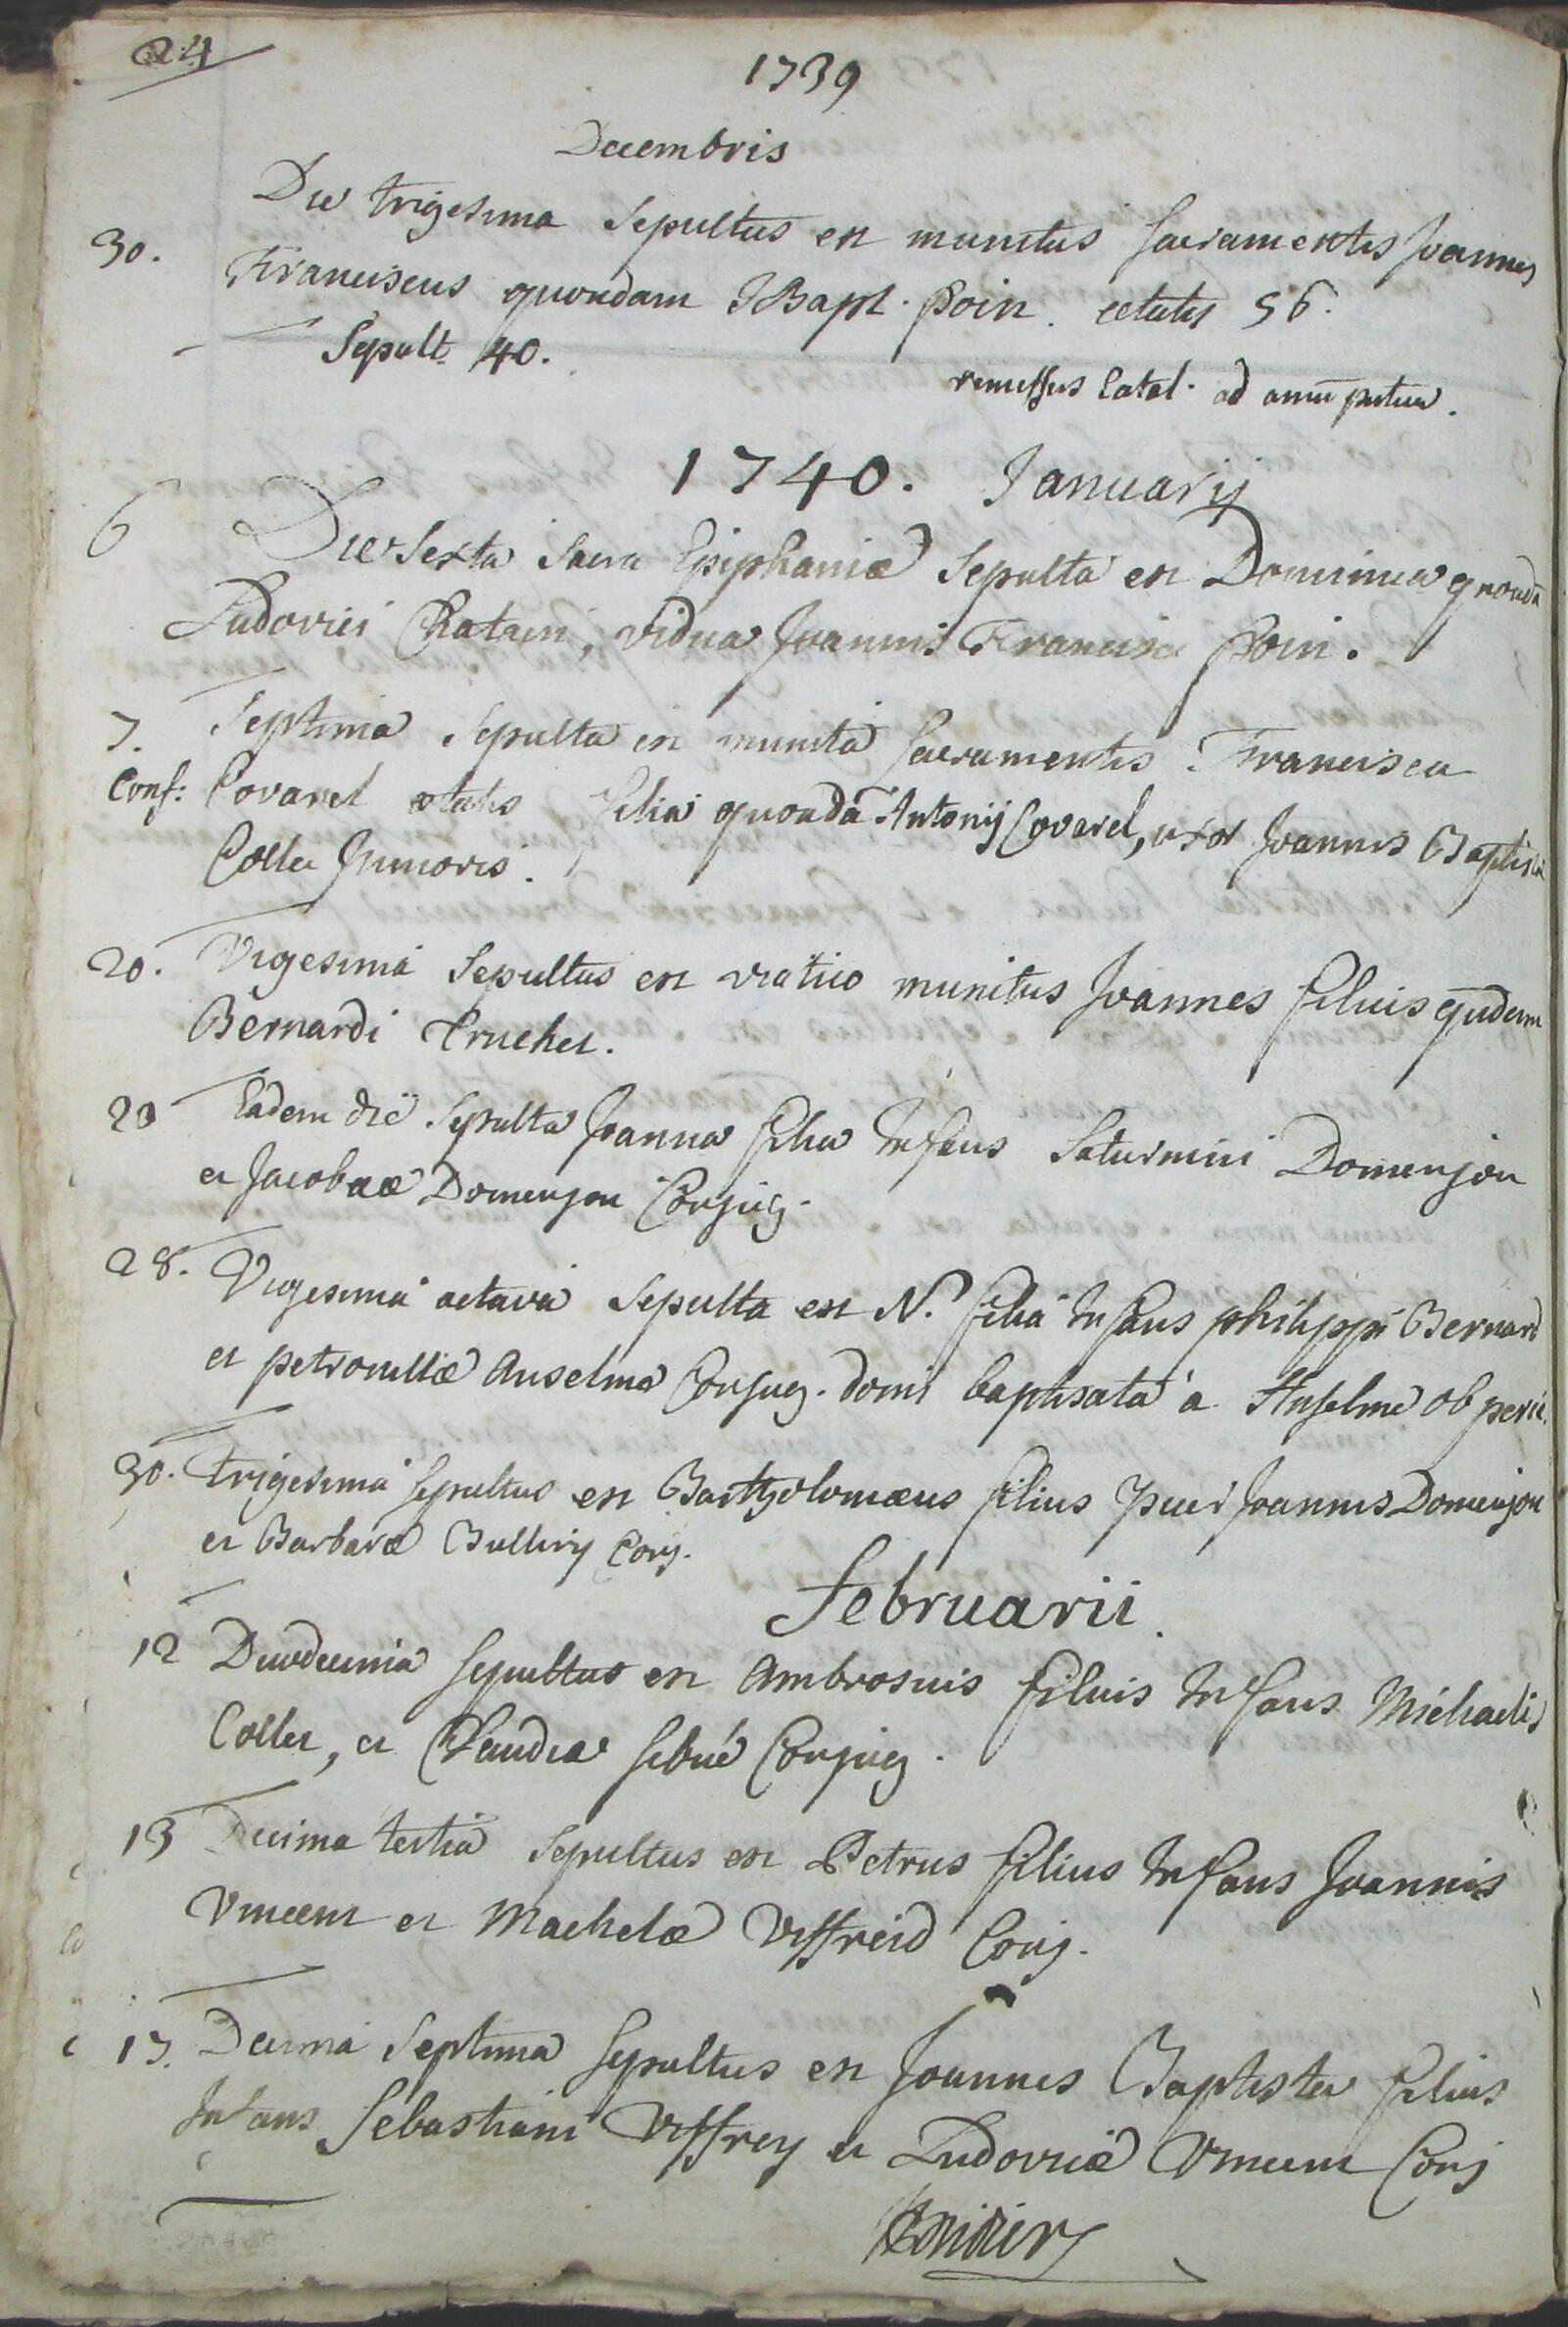 24
1739
Decembris
Die trigesima Sepultus est munitus Sacramentis Joannes
30. Franciscus quondam JBapt. Poin. ætatis 56.
Sepult. 40.
remissus Catal. ad
1740. Januarij
6 Die Sexta Sacra Epiphaniæ Sepulta est Dominica quondã
Ludovici Chatain, vidua Joannis Francisci Poin.
7. Septima Sepulta est munita Sacramentis Francisca
Conf: Covarel ætatis filia quondã Antonij Covarel, uxor Joannis Baptistæ
Collet Junioris.
20. Vigesima Sepultus est viatico munitus Joannes filius qudam
Bernardi Truchet.
20 Eadem die Sepulta Joanna filia Infans Saturnini Domenjon
et Jacobææ Domenjon Conjug.
28. Vigesima octava Sepulta est N. filia Infans philippi Bernard
et petronillæ Anselme Conjug. domi baptisata a Anselme ob peric.
30. Trigesima Sepultus est Bartholomæus filius puer Joannis Domenjon
et Barbaræ Bulliery Conj.
februarii.
12 Duodecima Sepultus est Ambrosius filius Infans Michaelis
Collet, et Claudiæ Conjug.
13 Decima tertia Sepultus est Petrus filius Infans Joannis
Vincent et Machelæ Viffreid Conj.
17. Decima Septima Sepultus est Joannes Baptista filius
Infans Sebastiani Viffrey et Ludovicæ Vincent Conj